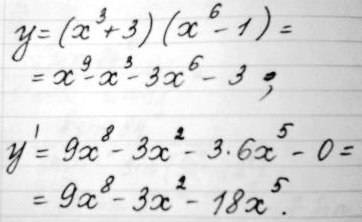 y=(x³+3)(x⁶-1)=
=x⁹-x³-3x⁶-3;
y'=9x⁸-3x²-3·6x⁵-0=
=9x⁸-3x²-18x⁵.